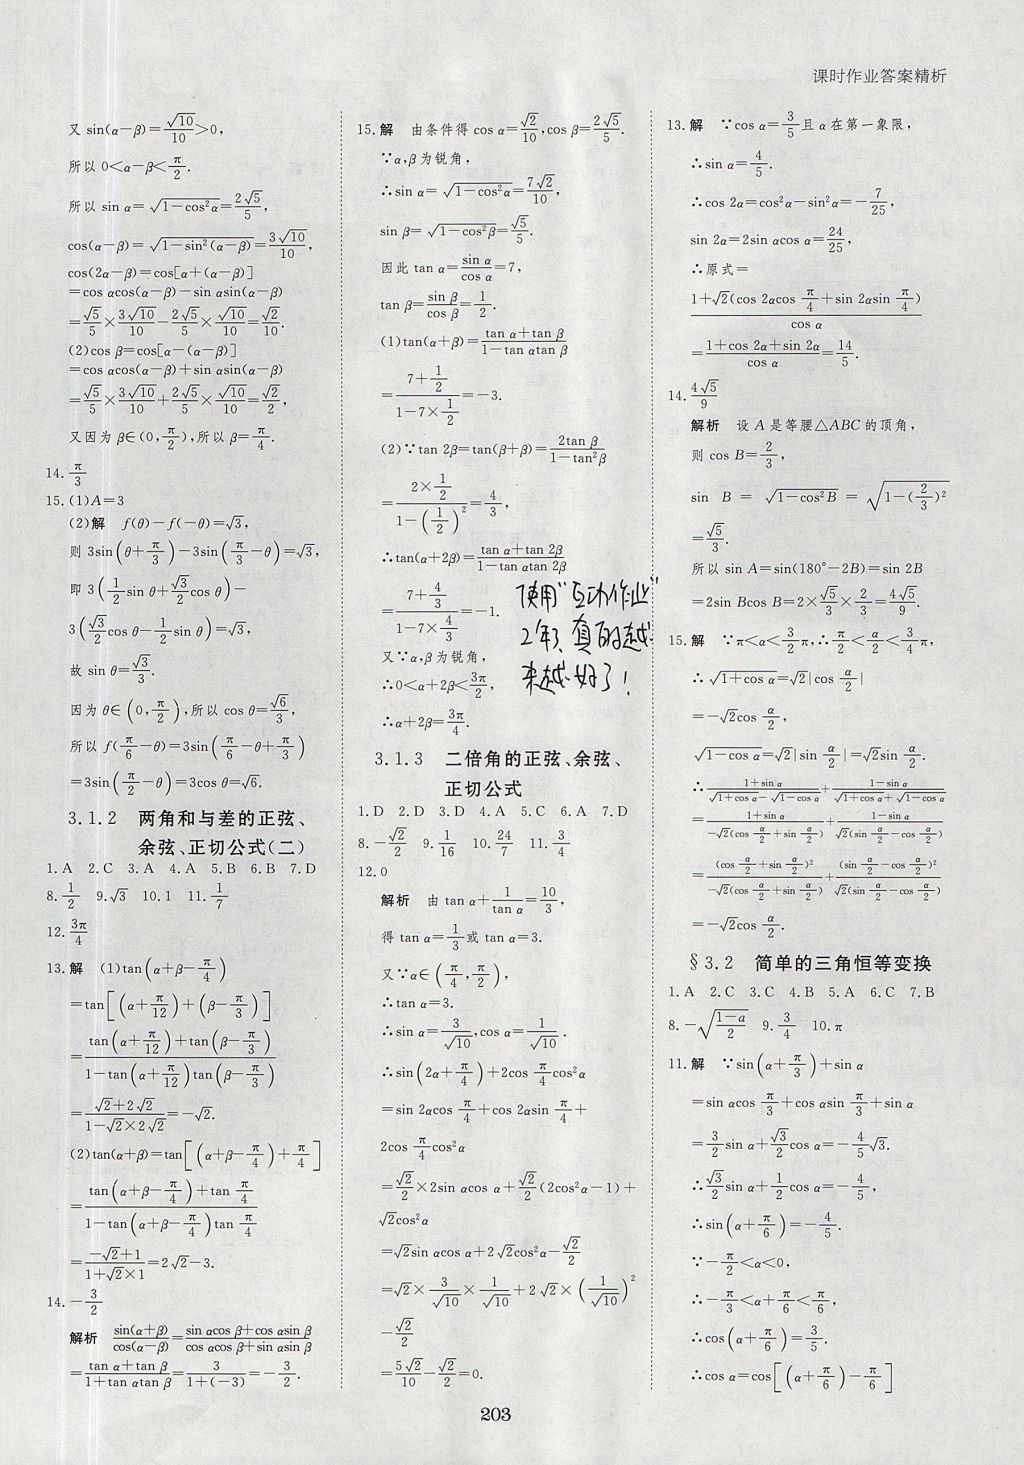 课时作业答案精析
又 sin(α－β)＝√10/10＞0,
所以 0＜α－β＜π/2.
所以 sin α＝√(1－cos²α)＝2√5/5,
cos(α－β)＝√(1－sin²(α－β))＝3√10/10,
cos(2α－β)＝cos[α＋(α－β)]
＝cos αcos(α－β)－sin αsin(α－β)
＝√5/5×3√10/10－2√5/5×√10/10＝√2/10.
(2)cos β＝cos[α－(α－β)]
＝cos αcos(α－β)＋sin αsin(α－β)
＝√5/5×3√10/10＋2√5/5×√10/10＝√2/2,
又因为 β∈(0,π/2),所以 β＝π/4.
14.π/3
15.(1)A＝3
(2)解 f(θ)－f(－θ)＝√3,
则 3sin(θ＋π/3)－3sin(π/3－θ)＝√3,
即 3(1/2sin θ＋√3/2cos θ)－
3(√3/2cos θ－1/2sin θ)＝√3,
故 sin θ＝√3/3.
因为 θ∈(0,π/2),所以 cos θ＝√6/3,
所以 f(π/6－θ)＝3sin(π/6－θ＋π/3)
＝3sin(π/2－θ)＝3cos θ＝√6.
3.1.2 两角和与差的正弦、
余弦、正切公式(二)
1.A 2.C 3.C 4.A 5.B 6.B 7.D
8.1/2 9.√3 10.1 11.1/7
12.3π/4
13.解 (1)tan(α＋β－π/4)
＝tan[(α＋π/12)＋(β－π/3)]
＝(tan(α＋π/12)＋tan(β－π/3))/(1－tan(α＋π/12)tan(β－π/3))
＝(√2＋2√2)/(1－√2×2√2)＝－√2.
(2)tan(α＋β)＝tan[(α＋β－π/4)＋π/4]
＝(tan(α＋β－π/4)＋tan π/4)/(1－tan(α＋β－π/4)tan π/4)
＝(－√2＋1)/(1＋√2×1)＝2√2－3.
14.－3/2
解析 sin(α＋β)/cos(α－β)＝(sin αcos β＋cos αsin β)/(cos αcos β＋sin αsin β)
＝(tan α＋tan β)/(1＋tan αtan β)＝3/(1＋(－3))＝－3/2.
15.解 由条件得 cos α＝√2/10,cos β＝2√5/5.
∵α,β为锐角,
∴sin α＝√(1－cos²α)＝7√2/10,
sin β＝√(1－cos²β)＝√5/5.
因此 tan α＝sin α/cos α＝7,
tan β＝sin β/cos β＝1/2.
(1)tan(α＋β)＝(tan α＋tan β)/(1－tan αtan β)
＝(7＋1/2)/(1－7×1/2)＝－3.
(2)∵tan 2β＝tan(β＋β)＝2tan β/(1－tan²β)
＝(2×1/2)/(1－(1/2)²)＝4/3,
∴tan(α＋2β)＝(tan α＋tan 2β)/(1－tan αtan 2β)
＝(7＋4/3)/(1－7×4/3)＝－1.
又∵α,β为锐角,
∴0＜α＋2β＜3π/2,
∴α＋2β＝3π/4.
使用“互动作业”
2年了、真的越
来越好了!
3.1.3 二倍角的正弦、余弦、
正切公式
1.D 2.D 3.D 4.A 5.C 6.A 7.D
8.－√2/2 9.1/16 10.24/7 11.3/4
12.0
解析 由 tan α＋1/tan α＝10/3,
得 tan α＝1/3或 tan α＝3.
又∵α∈(π/4,π/2),
∴tan α＝3.
∴sin α＝3/√10,cos α＝1/√10.
∴sin(2α＋π/4)＋2cos π/4cos²α
＝sin 2αcos π/4＋cos 2αsin π/4＋
2cos π/4cos²α
＝√2/2×2sin αcos α＋√2/2(2cos²α－1)＋
√2cos²α
＝√2sin αcos α＋2√2cos²α－√2/2
＝√2×3/√10×1/√10＋2√2×(1/√10)²
－√2/2
＝5√2/10－√2/2＝0.
13.解 ∵cos α＝3/5且α在第一象限,
∴sin α＝4/5.
∴cos 2α＝cos²α－sin²α＝－7/25,
sin 2α＝2sin αcos α＝24/25,
∴原式＝
(1＋√2(cos 2αcos π/4＋sin 2αsin π/4))/cos α
＝(1＋cos 2α＋sin 2α)/cos α＝14/5.
14.4√5/9
解析 设A是等腰△ABC的顶角,
则 cos B＝2/3,
sin B＝√(1－cos²B)＝√(1－(2/3)²)
＝√5/3.
所以 sin A＝sin(180°－2B)＝sin 2B
＝2sin Bcos B＝2×√5/3×2/3＝4√5/9.
15.解 ∵π＜α＜3/2π,∴π/2＜α/2＜3/4π,
∴√(1＋cos α)＝√2|cos α/2|
＝－√2cos α/2,
√(1－cos α)＝√2|sin α/2|＝√2sin α/2.
∴(1＋sin α)/(√(1＋cos α)－√(1－cos α))＋(1－sin α)/(√(1＋cos α)＋√(1－cos α))
＝(1＋sin α)/(－√2(cos α/2＋sin α/2))＋(1－sin α)/(√2(sin α/2－cos α/2))
＝(cos α/2＋sin α/2)²/(－√2(cos α/2＋sin α/2))＋(sin α/2－cos α/2)²/(√2(sin α/2－cos α/2))
＝－√2cos α/2.
§3.2 简单的三角恒等变换
1.A 2.C 3.C 4.B 5.A 6.C 7.B
8.－√((1－a)/2) 9.3/4 10.π
11.解 ∵sin(α＋π/3)＋sin α
＝sin αcos π/3＋cos αsin π/3＋sin α
＝3/2sin α＋√3/2cos α＝－4/5√3.
∴√3/2sin α＋1/2cos α＝－4/5,
∴sin(α＋π/6)＝－4/5.
∵－π/2＜α＜0,
∴－π/3＜α＋π/6＜π/6,
∴cos(α＋π/6)＝3/5.
∴cos α＝cos[(α＋π/6)－π/6]
203